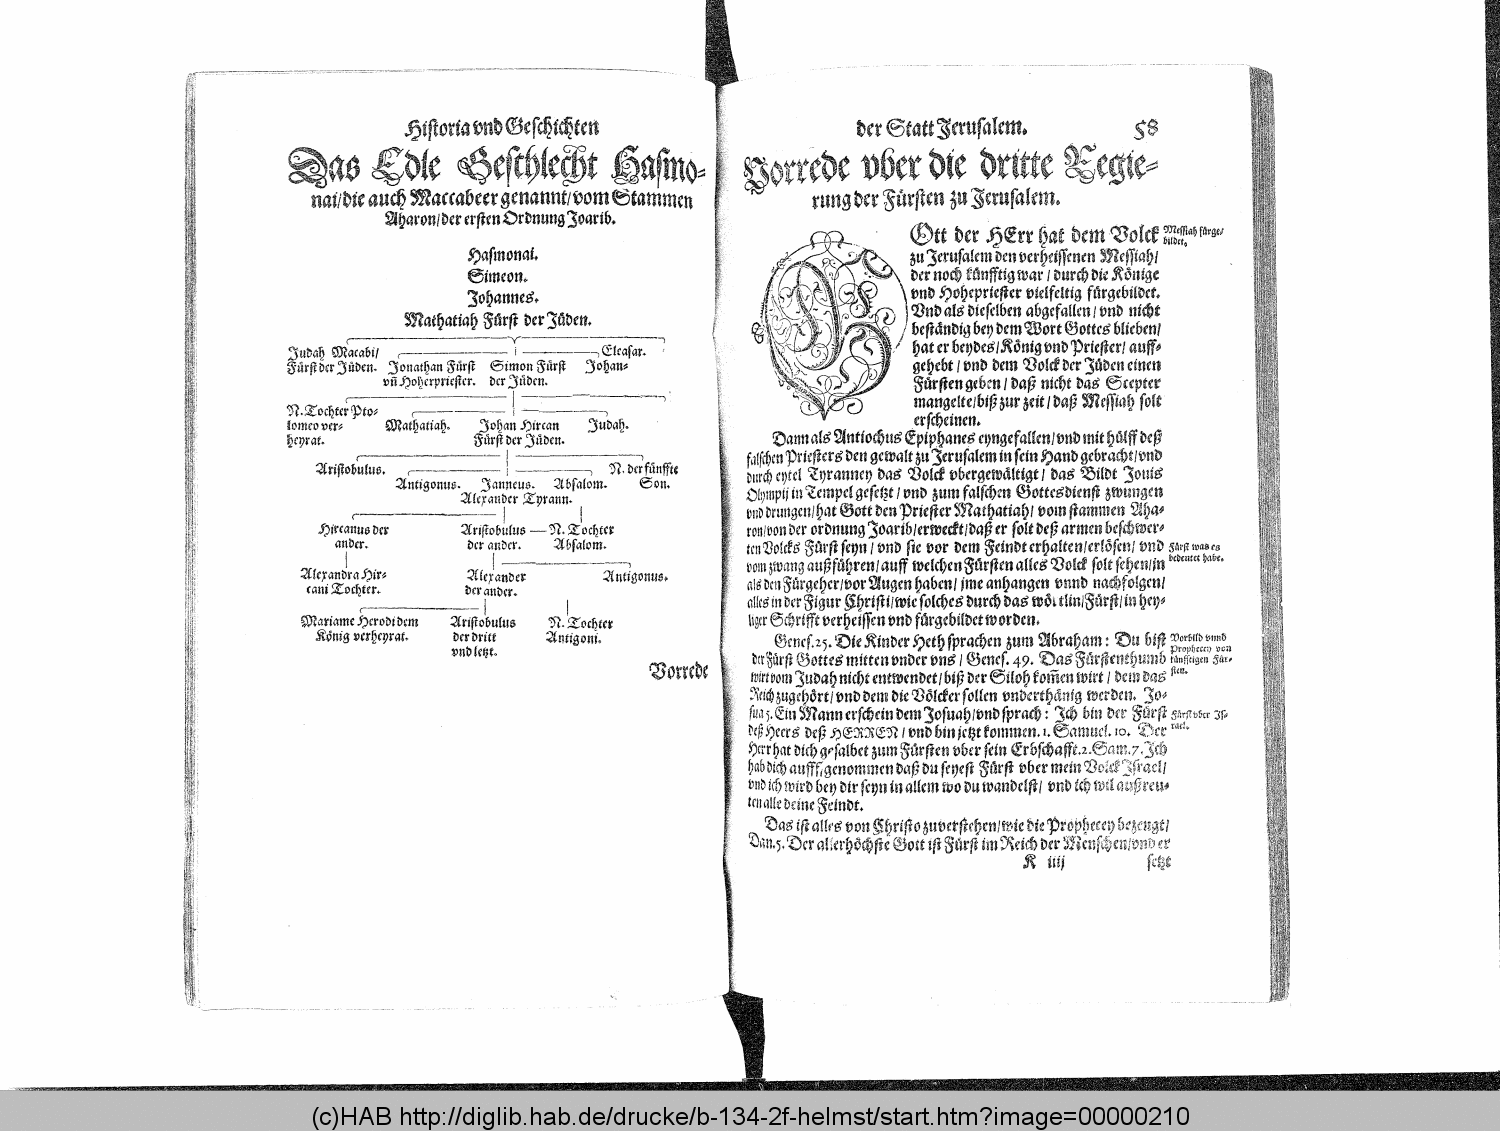 Historia vnd Geschichten
Das Edle Geschlecht Hasmo-
nai/die auch Maccabeer genannt/vom Stammen
Aharon/der ersten Ordnung Joarib.
Hasmonai.
Simeon.
Johannes.
Mathatiah Fürst der Jüden.
Judah Macabi/
Fürst der Jüden.
Jonathan Fürst
vñ Hoherpriester.
Simon Fürst
der Jüden.
Eleasar.
Johan-
N. Tochter Pto-
lomeo ver-
heyrat.
Mathatiah.
Johan Hircan
Fürst der Jüden.
Judah.
Aristobulus.
Antigonus.
Janneus.
Alexander Tyrann.
Absalom.
N. der fünffte
Son.
Hircanus der
ander.
Aristobulus
der ander.
N. Tochter
Absalom.
Alexandra Hir-
cani Tochter.
Alexander
der ander.
Antigonus.
Mariame Herodi dem
König verheyrat.
Aristobulus
der dritt
vnd letzt.
N. Tochter
Antigoni.
Vorrede
der Statt Jerusalem.
58
Vorrede vber die dritte Regie-
rung der Fürsten zu Jerusalem.
GOtt der HErr hat dem Volck
zu Jerusalem den verheissenen Messiah/
der noch künfftig war / durch die Könige
vnd Hohepriester vielfeltig fürgebildet.
Vnd als dieselben abgefallen/ vnd nicht
beständig bey dem Wort Gottes blieben/
hat er beydes/ König vnd Priester/ auff-
gehebt / vnd dem Volck der Jüden einen
Fürsten geben / daß nicht das Scepter
mangelte/biß zur zeit/ daß Messiah solt
erscheinen.
Messiah fürge-
bildet.
Dann als Antiochus Epiphanes eyngefallen/vnd mit hülff deß
falschen Priesters den gewalt zu Jerusalem in sein Hand gebracht/vnd
durch eytel Tyranney das Volck vbergewältigt / das Bildt Jouis
Olympij in Tempel gesetzt / vnd zum falschen Gottesdienst zwungen
vnd drungen/hat Gott den Priester Mathatiah/ vom stammen Aha-
ron/von der ordnung Joarib/erweckt/daß er solt deß armen beschwer-
ten Volcks Fürst seyn / vnd sie vor dem Feindt erhalten/erlösen/ vnd
vom zwang außführen/ auff welchen Fürsten alles Volck solt sehen/in
als den Fürgeher/vor Augen haben/ jme anhangen vnnd nachfolgen/
alles in der Figur Christi/wie solches durch das wörtlin/Fürst/in hey-
liger Schrifft verheissen vnd fürgebildet worden.
Fürst was es
bedeutet habe.
Genes. 25. Die Kinder Heth sprachen zum Abraham: Du bist
der Fürst Gottes mitten vnder vns / Genes. 49. Das Fürstenthumb
wirt vom Judah nicht entwendet/biß der Siloh kom̃en wirt / dem das
Reich zugehört/vnd dem die Völcker sollen vnderthänig werden. Jo-
sua 5. Ein Mann erschein dem Josuah/vnd sprach: Ich bin der Fürst
deß Heers deß HERREN / vnd bin jetzt kommen. 1. Samuel. 10. Der
Herr hat dich gesalbet zum Fürsten vber sein Erbschafft. 2. Sam. 7. Ich
hab dich auff genommen daß du seyest Fürst vber mein Volck Israel/
vnd ich wird bey dir seyn in allem wo du wandelst/ vnd ich wil außreu-
ten alle deine Feindt.
Vorbild vnnd
Prophecey von
künfftigen Für-
sten.
Fürst vber Is-
rael.
Das ist alles von Christo zuverstehen/wie die Prophecey bezeugt/
Dan. 5. Der allerhöchste Gott ist Fürst im Reich der Menschen/vnd er
K iiij
setzt
(c)HAB http://diglib.hab.de/drucke/b-134-2f-helmst/start.htm?image=00000210